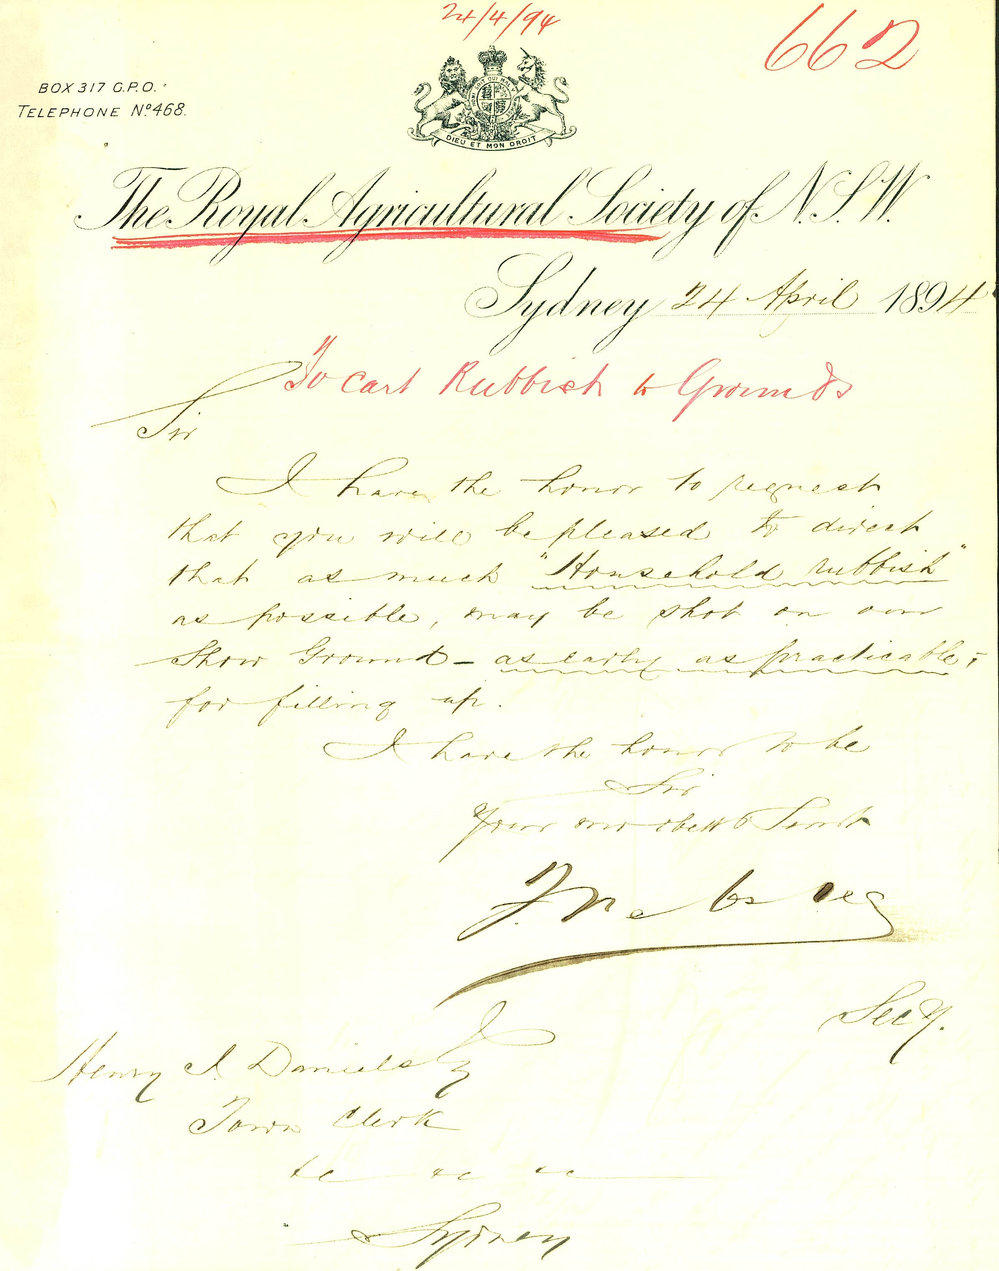 24/4/94
662
BOX 317 G.P.O.
TELEPHONE Nº 468.
DIEU ET MON DROIT
The Royal Agricultural Society of N.S.W.
Sydney 24 April 1894
To cart Rubbish to Grounds
Sir
I have the honor to request
that you will be pleased to direct
that as much "Household rubbish"
as possible, may be shot on our
Show Ground - as early as practicable,
for filling up.
I have the honor to be
Sir
Your
F.
Secy.
Henry Daniels
Town Clerk
&c &c &c
Sydney